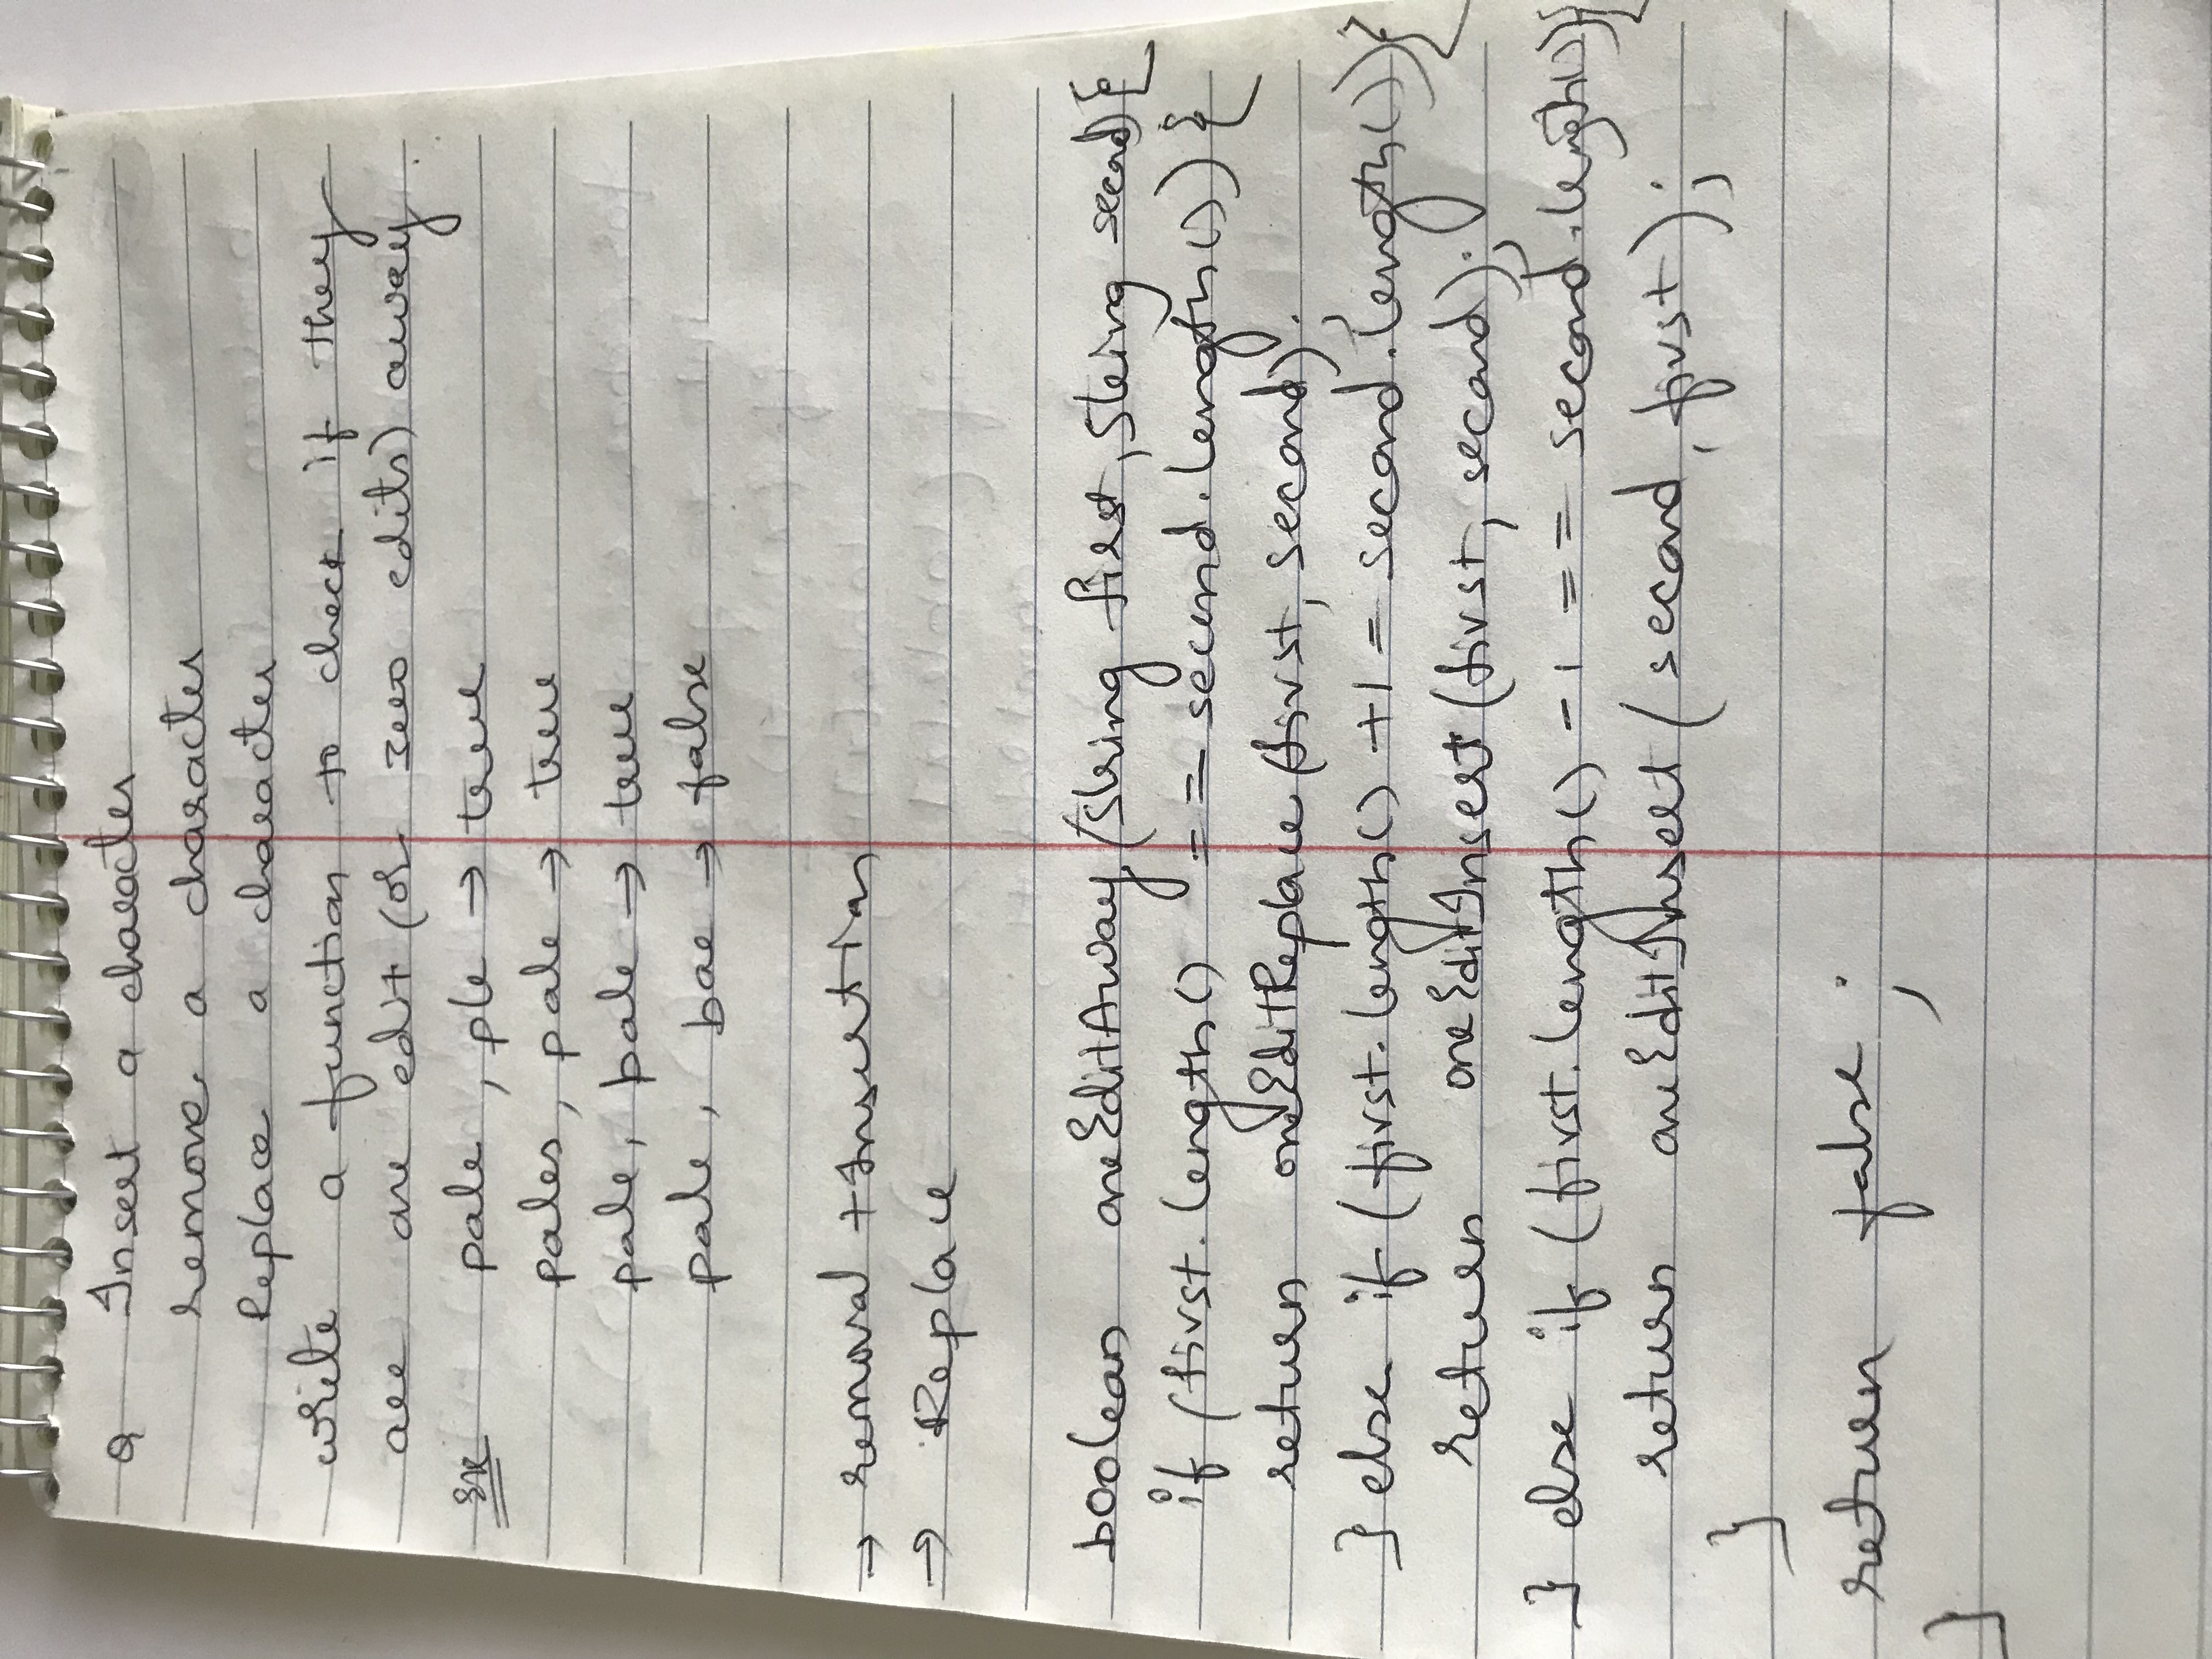 Q Insert a character
remove a character
Replace a character
write a function to check if they
are one edit (or zero edits) away.
Ex pale, ple → true
pales, pale → true
pale, bale → true
pale, bae → false
→ removal + Insertion
→ Replace
boolean oneEditAway (String first, String second) {
if (first.length() == second.length()) {
return oneEditReplace (first, second);
} else if (first.length() +1 = second.length()) {
return oneEditInsert (first, second);
} else if (first.length() -1 == second.length()) {
return oneEditInsert (second, first);
}
return false;
}